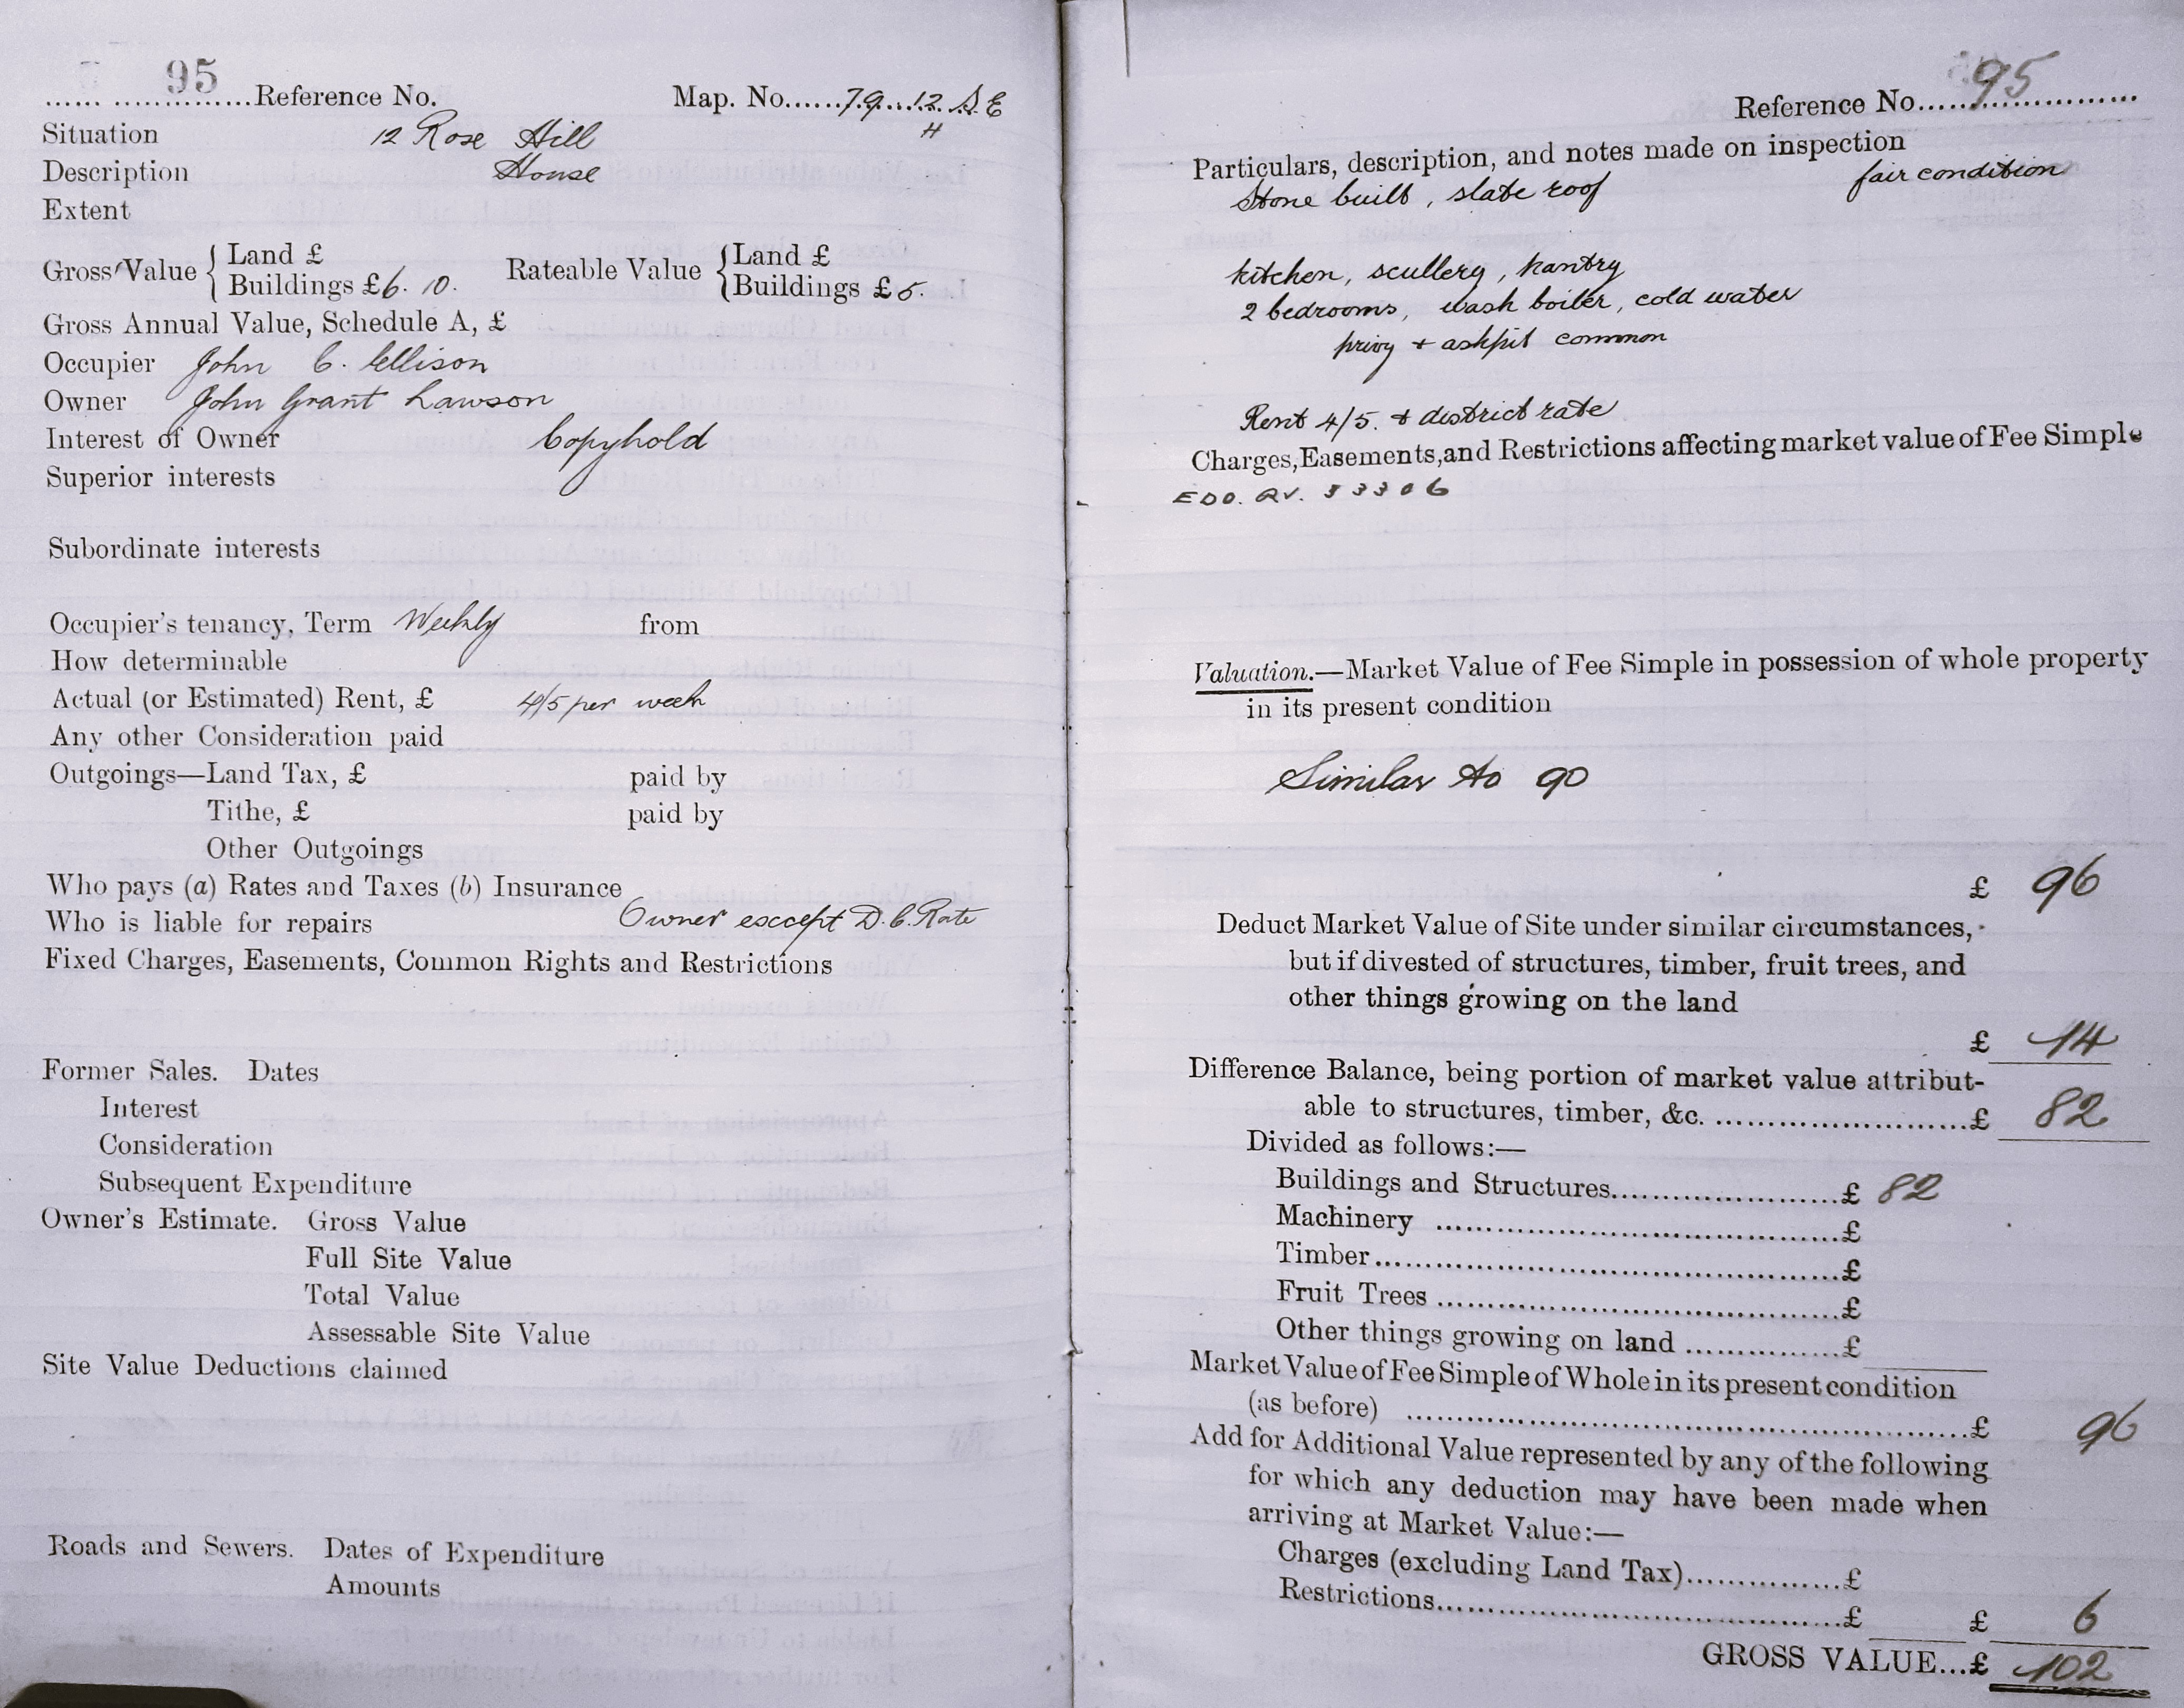 95
Reference No. Map. No. 79 12 S.E
H
Situation 12 Rose Hill
Description House
Extent
Gross Value { Land £
Buildings £6. 10.
Rateable Value { Land £
Buildings £ 5.
Gross Annual Value, Schedule A, £
Occupier John C. Ellison
Owner John Grant Lawson
Interest of Owner Copyhold
Superior interests
Subordinate interests
Occupier's tenancy, Term Weekly from
How determinable
Actual (or Estimated) Rent, £ 4/5 per week
Any other Consideration paid
Outgoings—Land Tax, £ paid by
Tithe, £ paid by
Other Outgoings
Who pays (a) Rates and Taxes (b) Insurance
Who is liable for repairs Owner except D.C. Rate
Fixed Charges, Easements, Common Rights and Restrictions
Former Sales. Dates
Interest
Consideration
Subsequent Expenditure
Owner's Estimate. Gross Value
Full Site Value
Total Value
Assessable Site Value
Site Value Deductions claimed
Roads and Sewers. Dates of Expenditure
Amounts
Reference No. 95
Particulars, description, and notes made on inspection
Stone built, slate roof fair condition
kitchen, scullery, pantry
2 bedrooms, wash boiler, cold water
privy + ashpit common
Rent 4/5. + district rate
Charges, Easements, and Restrictions affecting market value of Fee Simple
Valuation.—Market Value of Fee Simple in possession of whole property
in its present condition
Similar to 90
£ 96
Deduct Market Value of Site under similar circumstances,
but if divested of structures, timber, fruit trees, and
other things growing on the land
£ 14
Difference Balance, being portion of market value attribut-
able to structures, timber, &c. £ 82
Divided as follows:—
Buildings and Structures £ 82
Machinery £
Timber £
Fruit Trees £
Other things growing on land £
Market Value of Fee Simple of Whole in its present condition
(as before) £ 96
Add for Additional Value represented by any of the following
for which any deduction may have been made when
arriving at Market Value:—
Charges (excluding Land Tax) £
Restrictions £ £ 6
GROSS VALUE...£ 102